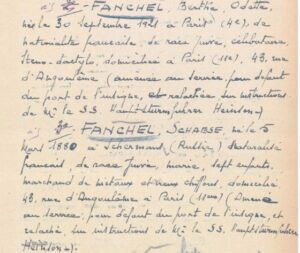 a) 2/- FANCHEL, Berthe, Odette,
née le 30 Septembre 1921 à Paris (4e), de
nationalité française, de race juive, célibataire,
sténo-dactylo, domiciliée à Paris (11e), 43, rue
d'Angoulême (amenée au service pour défaut
du port de l'insigne, et relachée sur instructions
de Mr le S.S. Hauptsturmführer Heinson).
FANCHEL, SCHABSE, né le 5
Mars 1880 à (Russie) Naturalisé
français, de race juive, marié, sept enfants,
marchand de métaux et vieux chiffons, domicilié
43, rue d'Angoulême à Paris (11em) (Amené
au service, pour défaut du port de l'insigne, et
relaché sur instructions de Mr le S.S. Hauptsturmführer
Heinson).